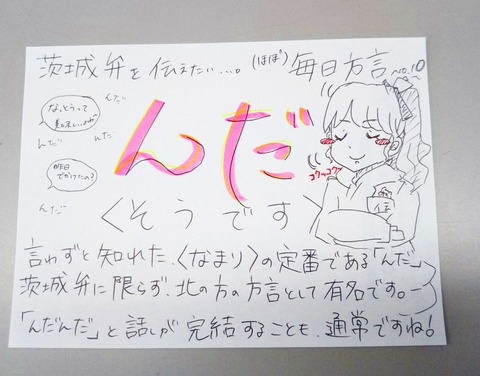 茨城弁を伝えたい…。(ほぼ)毎日方言〜no.10〜
なっとうって
美味しいよね
んだ
んだ
んだ
昨日
でかけたの?
んだ
んだ
コクッコクッ
伝
<そうです
言わずと知れた、〈なまり〉の定番である「んだ」
茨城弁に限らず、北の方の方言として有名です。
「んだんだ」と話しが完結することも、通常ですね!